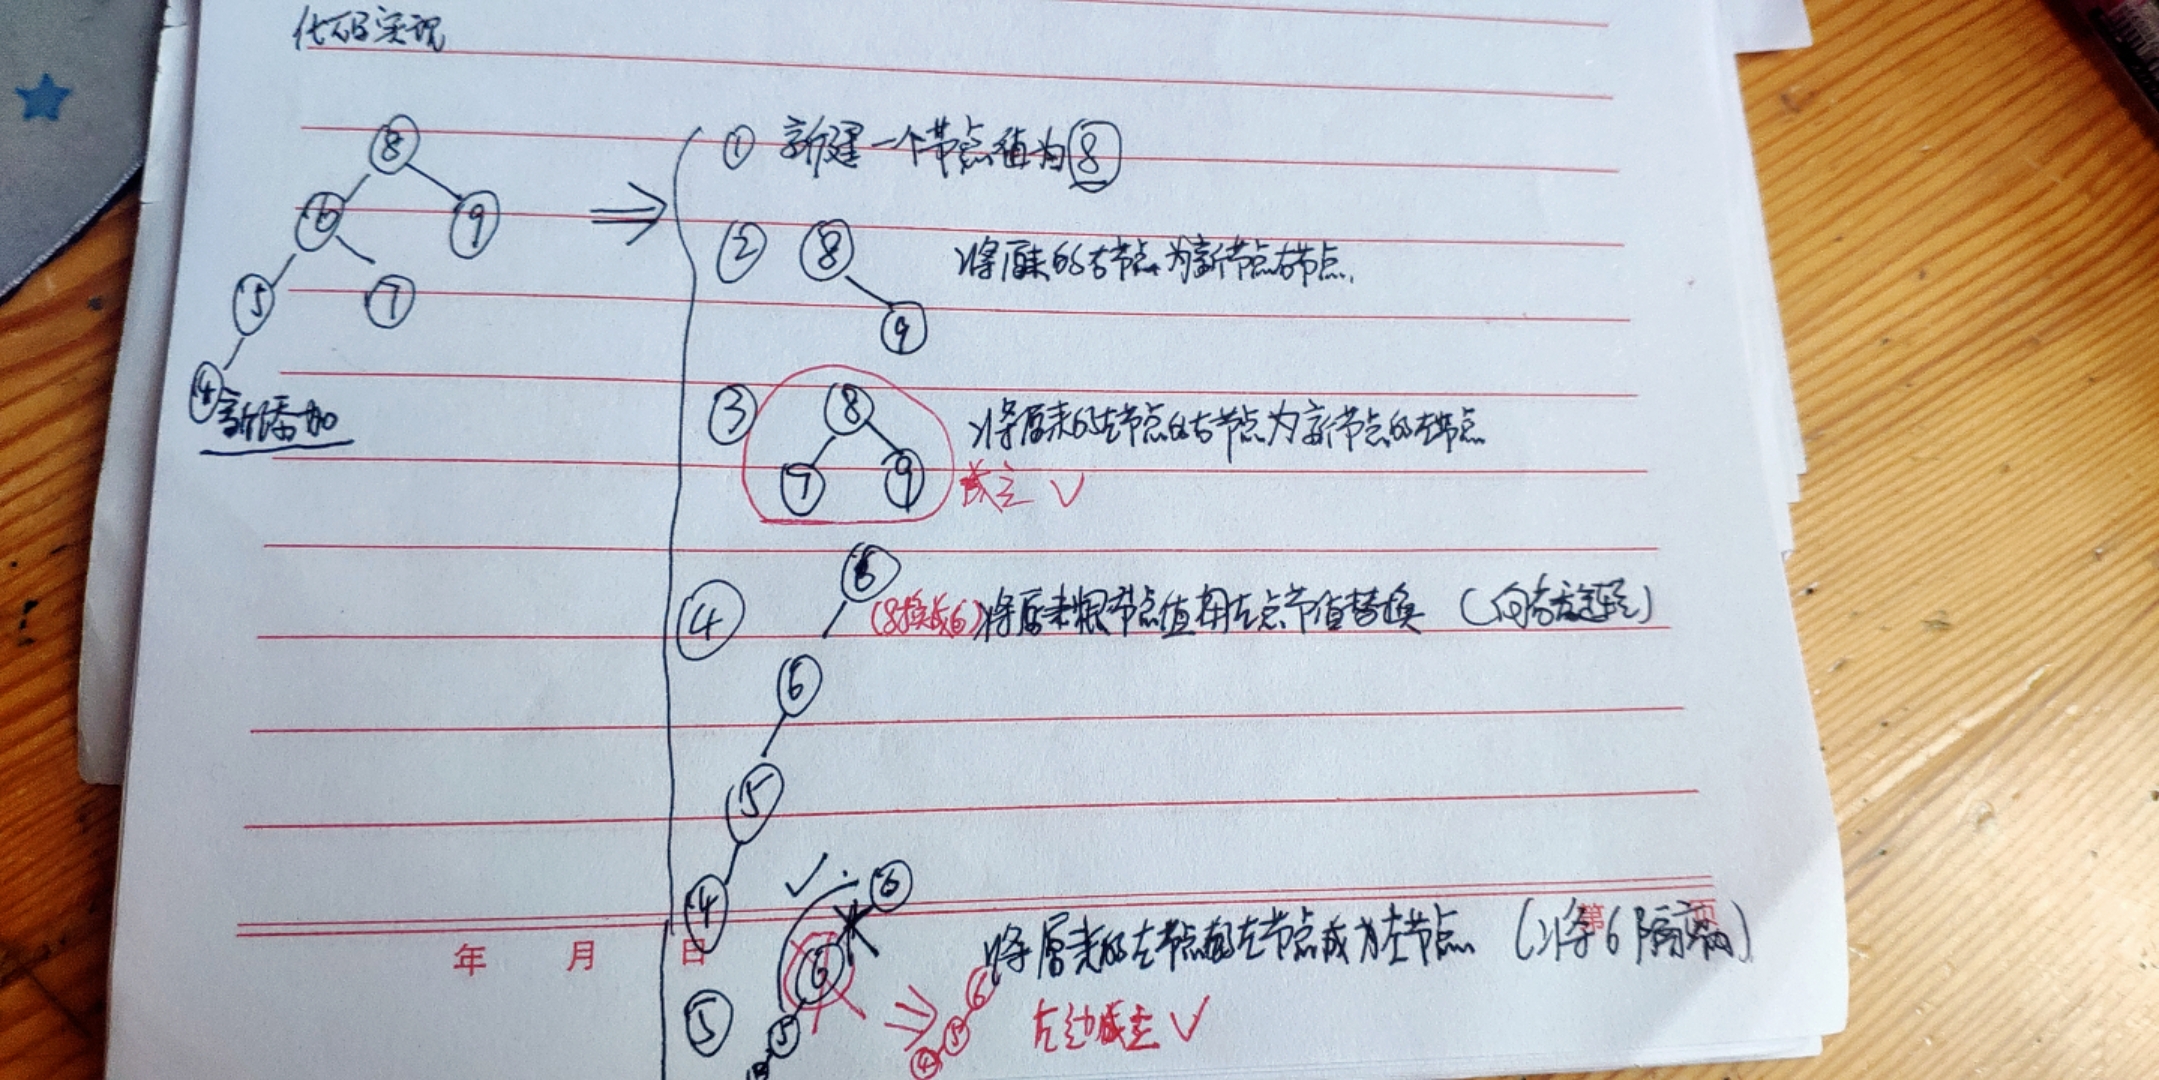 代码实现
8
6 9
5 7
4 新添加
① 新建一个节点值为8
② 8 将原来的右节点为新节点右节点.
9
③ 8 将原来的左节点的右节点为新节点的左节点
7 9 成立 ✓
④ 6 (8换成6)将原来根节点值用左点节值替换 (向右旋转)
6
5
4
✓ 6
6 将原来的左节点的左节点成为左节点 (将6隔离)
年 月 日 第 页
⑤ 5 ⇒ 4 5 6 左边成立 ✓